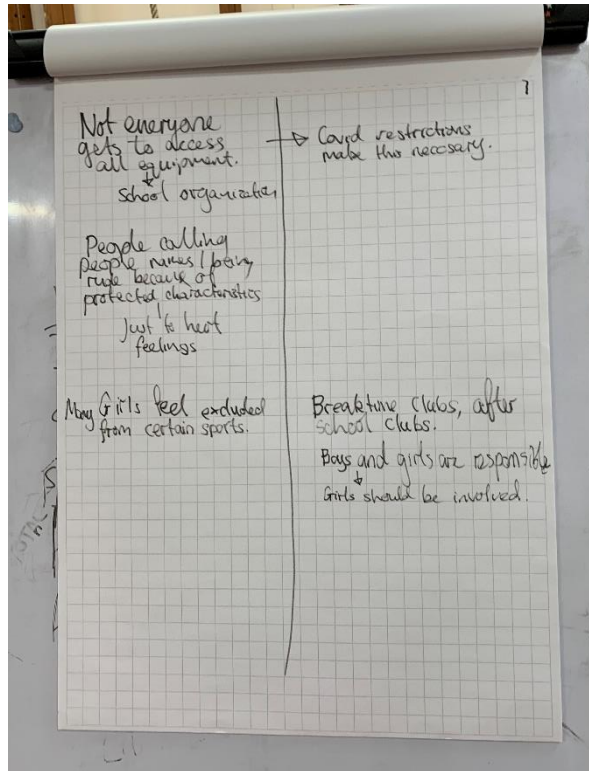 Not everyone
gets to access
all equipment.
School organization
People calling
people names / being
rude because of
protected characteristics
Just to heart
feelings
Many Girls feel excluded
from certain sports.
1
Covid restrictions
make this necosary.
Breaktime clubs, after
school clubs.
Boys and girls are responsible
Girls should be involved.